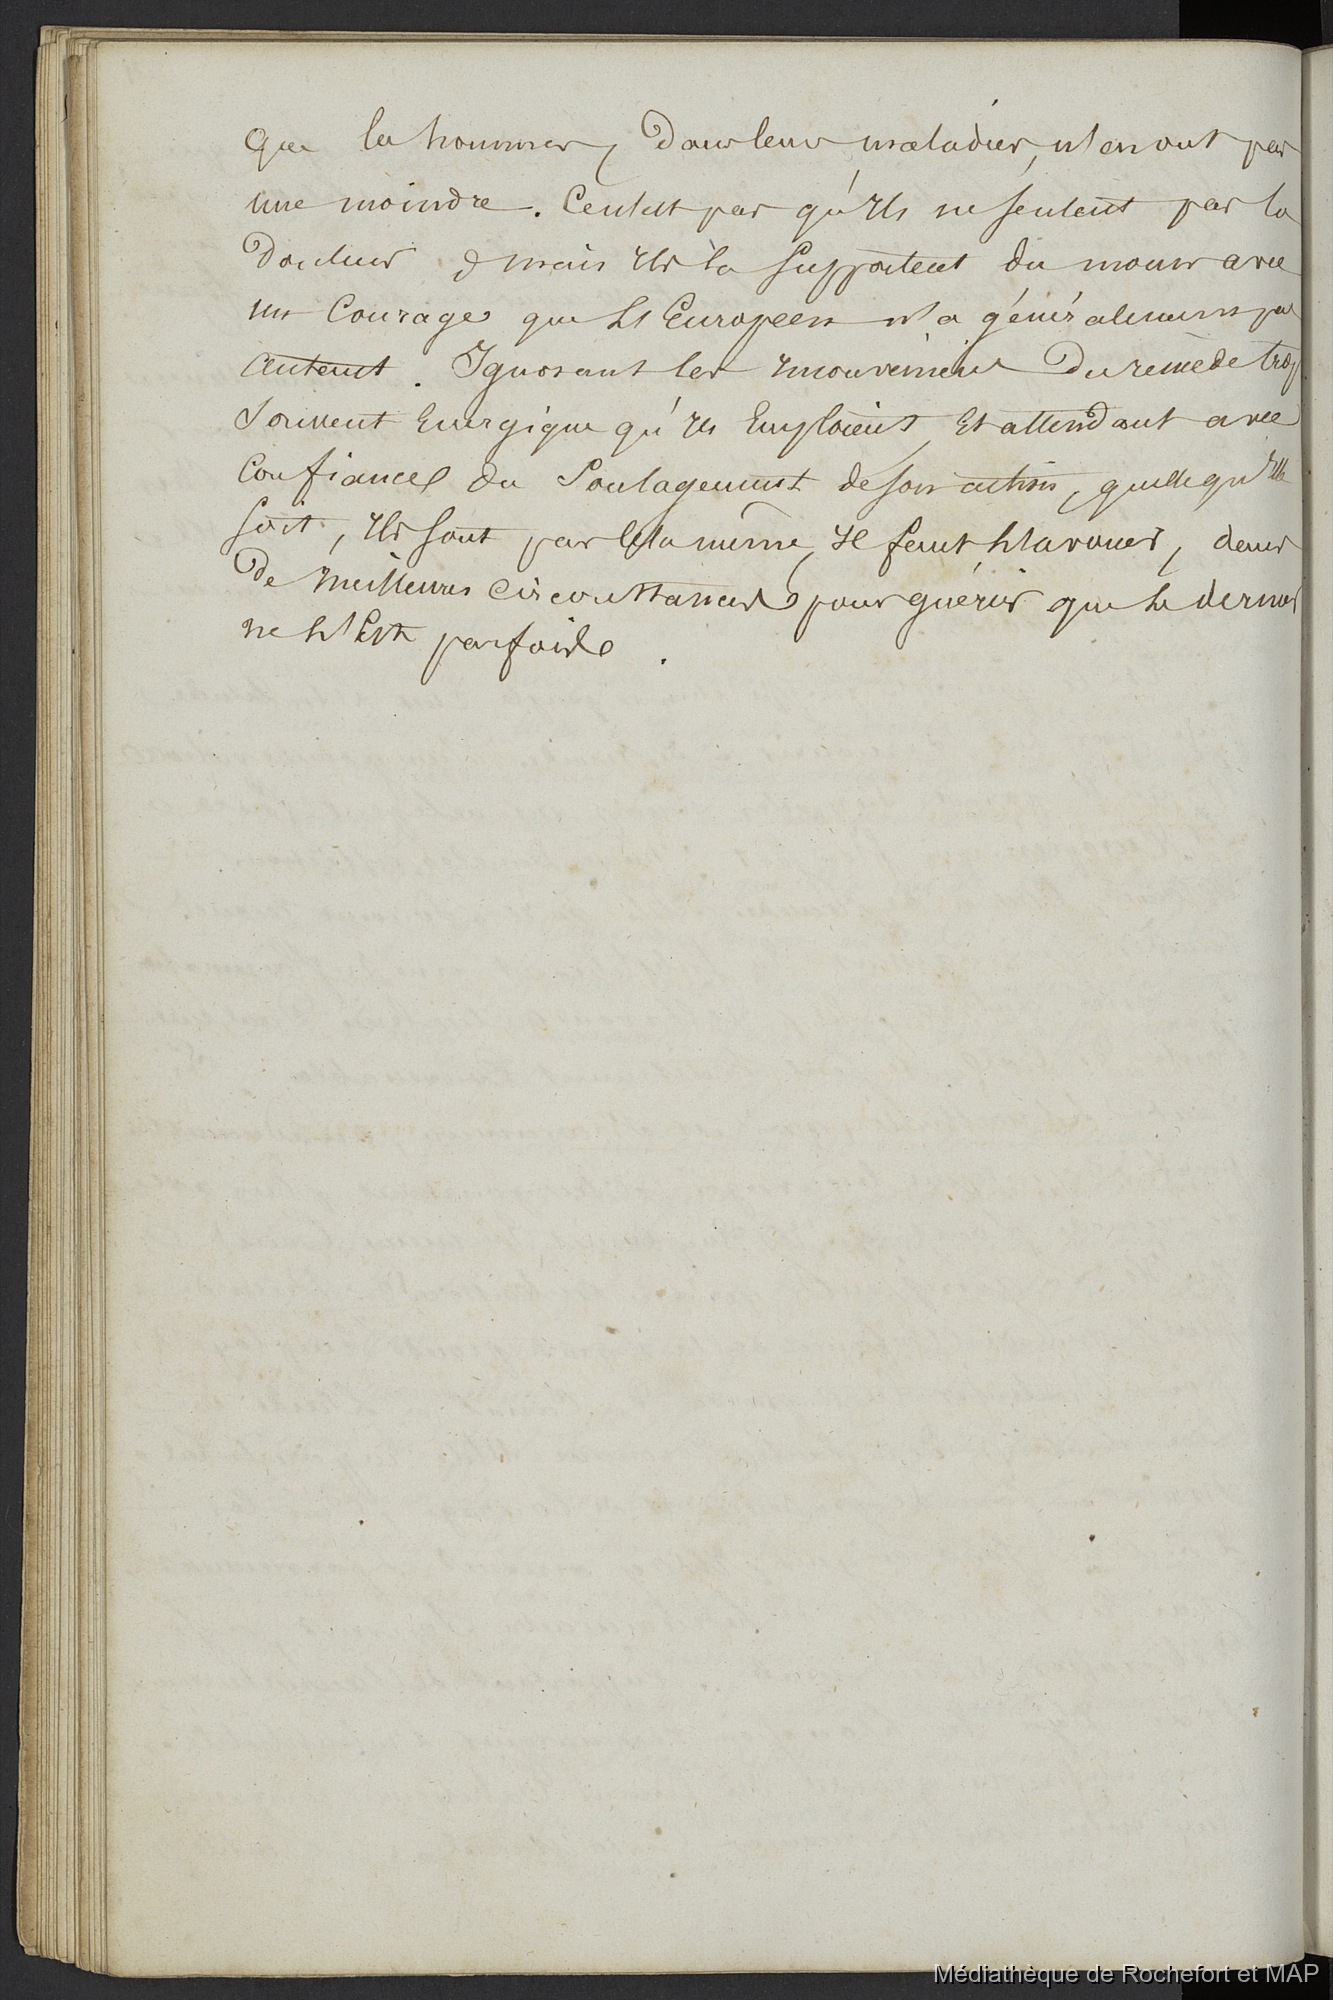 Que les hommes, Dans leurs maladies, n'en ont pas
une moindre. Ce n'est pas qu'Ils ne sentent pas la
Douleur, mais Ils la Supportent du moins avec
un Courage que l'Européen n'a généralement pas
autant. Ignorant les mouvemens Du remède trop
Souvent Energique qu'Ils Emploient, Et attendant avec
Confiance du Soulagement de son action, quelle qu'Elle
Soit, Ils sont par cela même, Il faut l'avouer, dans
De meilleures Circonstances pour guérir que le dernier
ne l'Est parfois.
Médiathèque de Rochefort et MAP